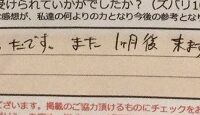 受けられていかがでしたか？（ズバリ10
な感想が、私達の何よりの力となり今後の参考となり
ったです。また 1ヶ月後 来ま
ございます。掲載のご協力頂けるものにチェックをお